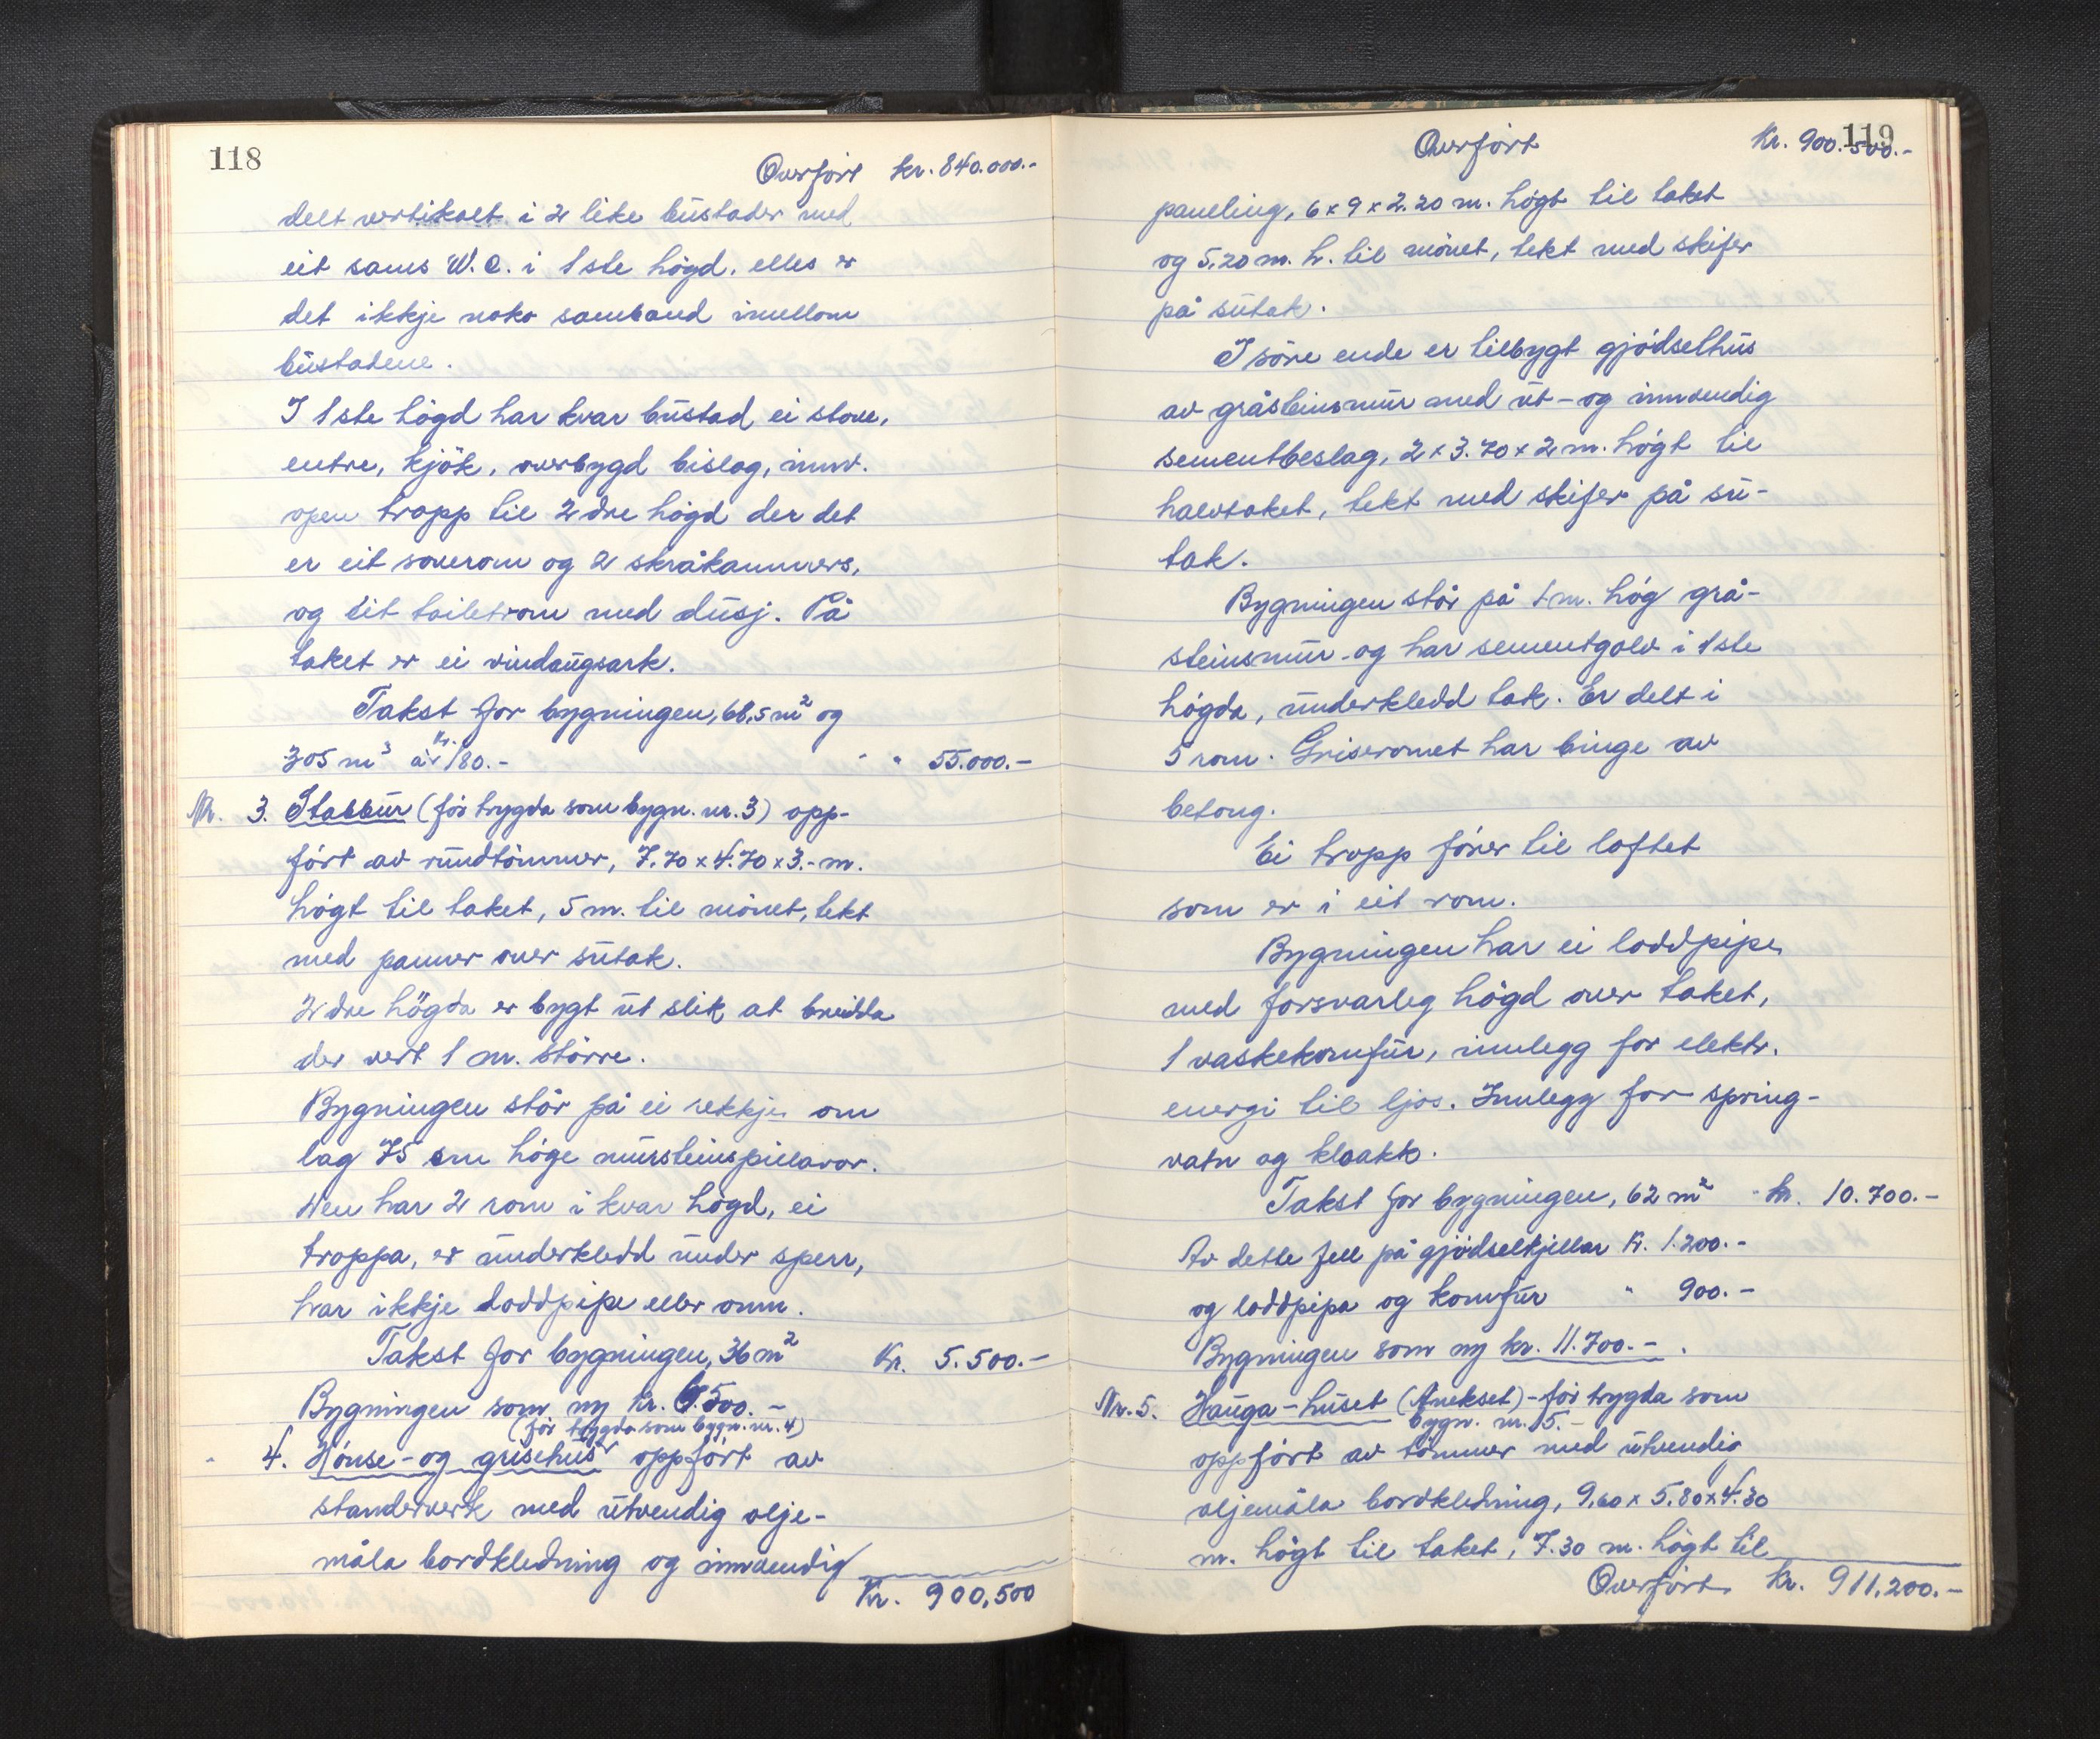 118
Overført kr. 840.000.-
delt vertikalt i 2 like bustader med
eit sams W.C. i 1ste høgd, elles er
det ikkje noko samband imellom
bustadene.
I 1ste høgd har kvar bustad ei stove,
entre, kjøk, overbygd bislag, innv.
open tropp til 2dre høgd der det
er eit soverom og 2 skråkammers,
og eit toiletrom med dusj. På
taket er ei vindaugsark.
Takst for bygningen, 68,5 m² og
305 m³ à kr. 180.- " " 55.000.-
Nr. 3. Stabbur (før trygda som bygn. nr. 3) opp-
ført av rundtømmer, 7.70 x 4.70 x 3.- m.
høgt til taket, 5 m. til mønet, tekt
med panner over sutak.
2dre høgda er bygt ut slik at breidda
der vert 1 m. større.
Bygningen står på ei rekkje om
lag 75 sm høge mursteinspillarar.
Den har 2 rom i kvar høgd, ei
troppa, er underkledd under sperr,
har ikkje loddpipe eller omn.
Takst for bygningen, 36 m² Kr. 5.500.-
Bygningen som ny kr. 6.500.-
(før trygda som bygn. nr. 4)
" 4. Hønse- og grisehus oppført av
standerverk med utvendig olje-
måla bordkledning og innvendig
Kr. 900,500
119
Overført Kr. 900.500.-
paneling, 6 x 9 x 2.20 m. høgt til taket
og 5,20 m. h. til mønet, tekt med skifer
på sutak.
I søre ende er tilbygt gjødselhus
av gråsteinsmur med ut- og innvendig
sementbeslag, 2 x 3.70 x 2 m. høgt til
halvtaket, tekt med skifer på su-
tak.
Bygningen står på 1 m. høg grå-
steinsmur og har sementgolv i 1ste
høgda, underkledd tak. Er delt i
5 rom. Griseromet har binge av
betong.
Ei tropp fører til loftet
som er i eit rom.
Bygningen har ei loddpipe
med forsvarleg høgd over taket,
1 vaskekomfur, innlegg for elektr.
energi til ljos. Innlegg for spring-
vatn og kloakk.
Takst for bygningen, 62 m² kr. 10.700.-
Av dette fell på gjødselkjellar Kr. 1.200.-
og loddpipa og komfur " 900.-
Bygningen som ny kr. 11.700.-.
Nr. 5. Hauga-huset (Anekset) - før trygda som
bygn. nr. 5.-
oppført av tømmer med utvendig
oljemåla bordkledning, 9,60 x 5.80 x 4.30
m. høgt til taket, 7.30 m. høgt til
Overført Kr. 911,200.-